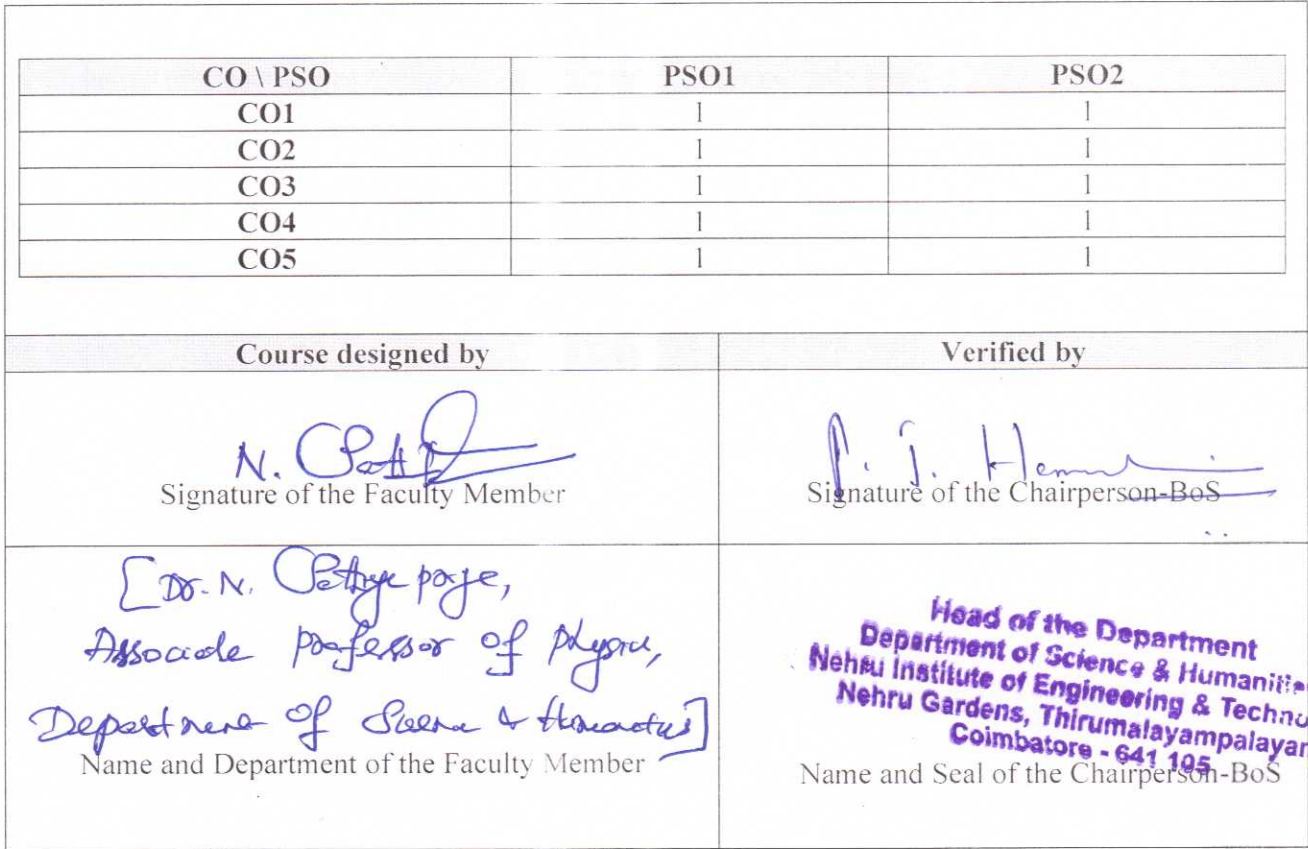 CO \ PSO PSO1 PSO2
CO1 1 1
CO2 1 1
CO3 1 1
CO4 1 1
CO5 1 1
Course designed by Verified by
N.
Signature of the Faculty Member
P. J.
Signature of the Chairperson-BoS
[Dr. N.
Associate professor of
Department of &
Name and Department of the Faculty Member
Head of the Department
Department of Science & Humanitie
Nehru Institute of Engineering & Techno
Nehru Gardens, Thirumalayampalayam
Coimbatore - 641 105
Name and Seal of the Chairperson-BoS